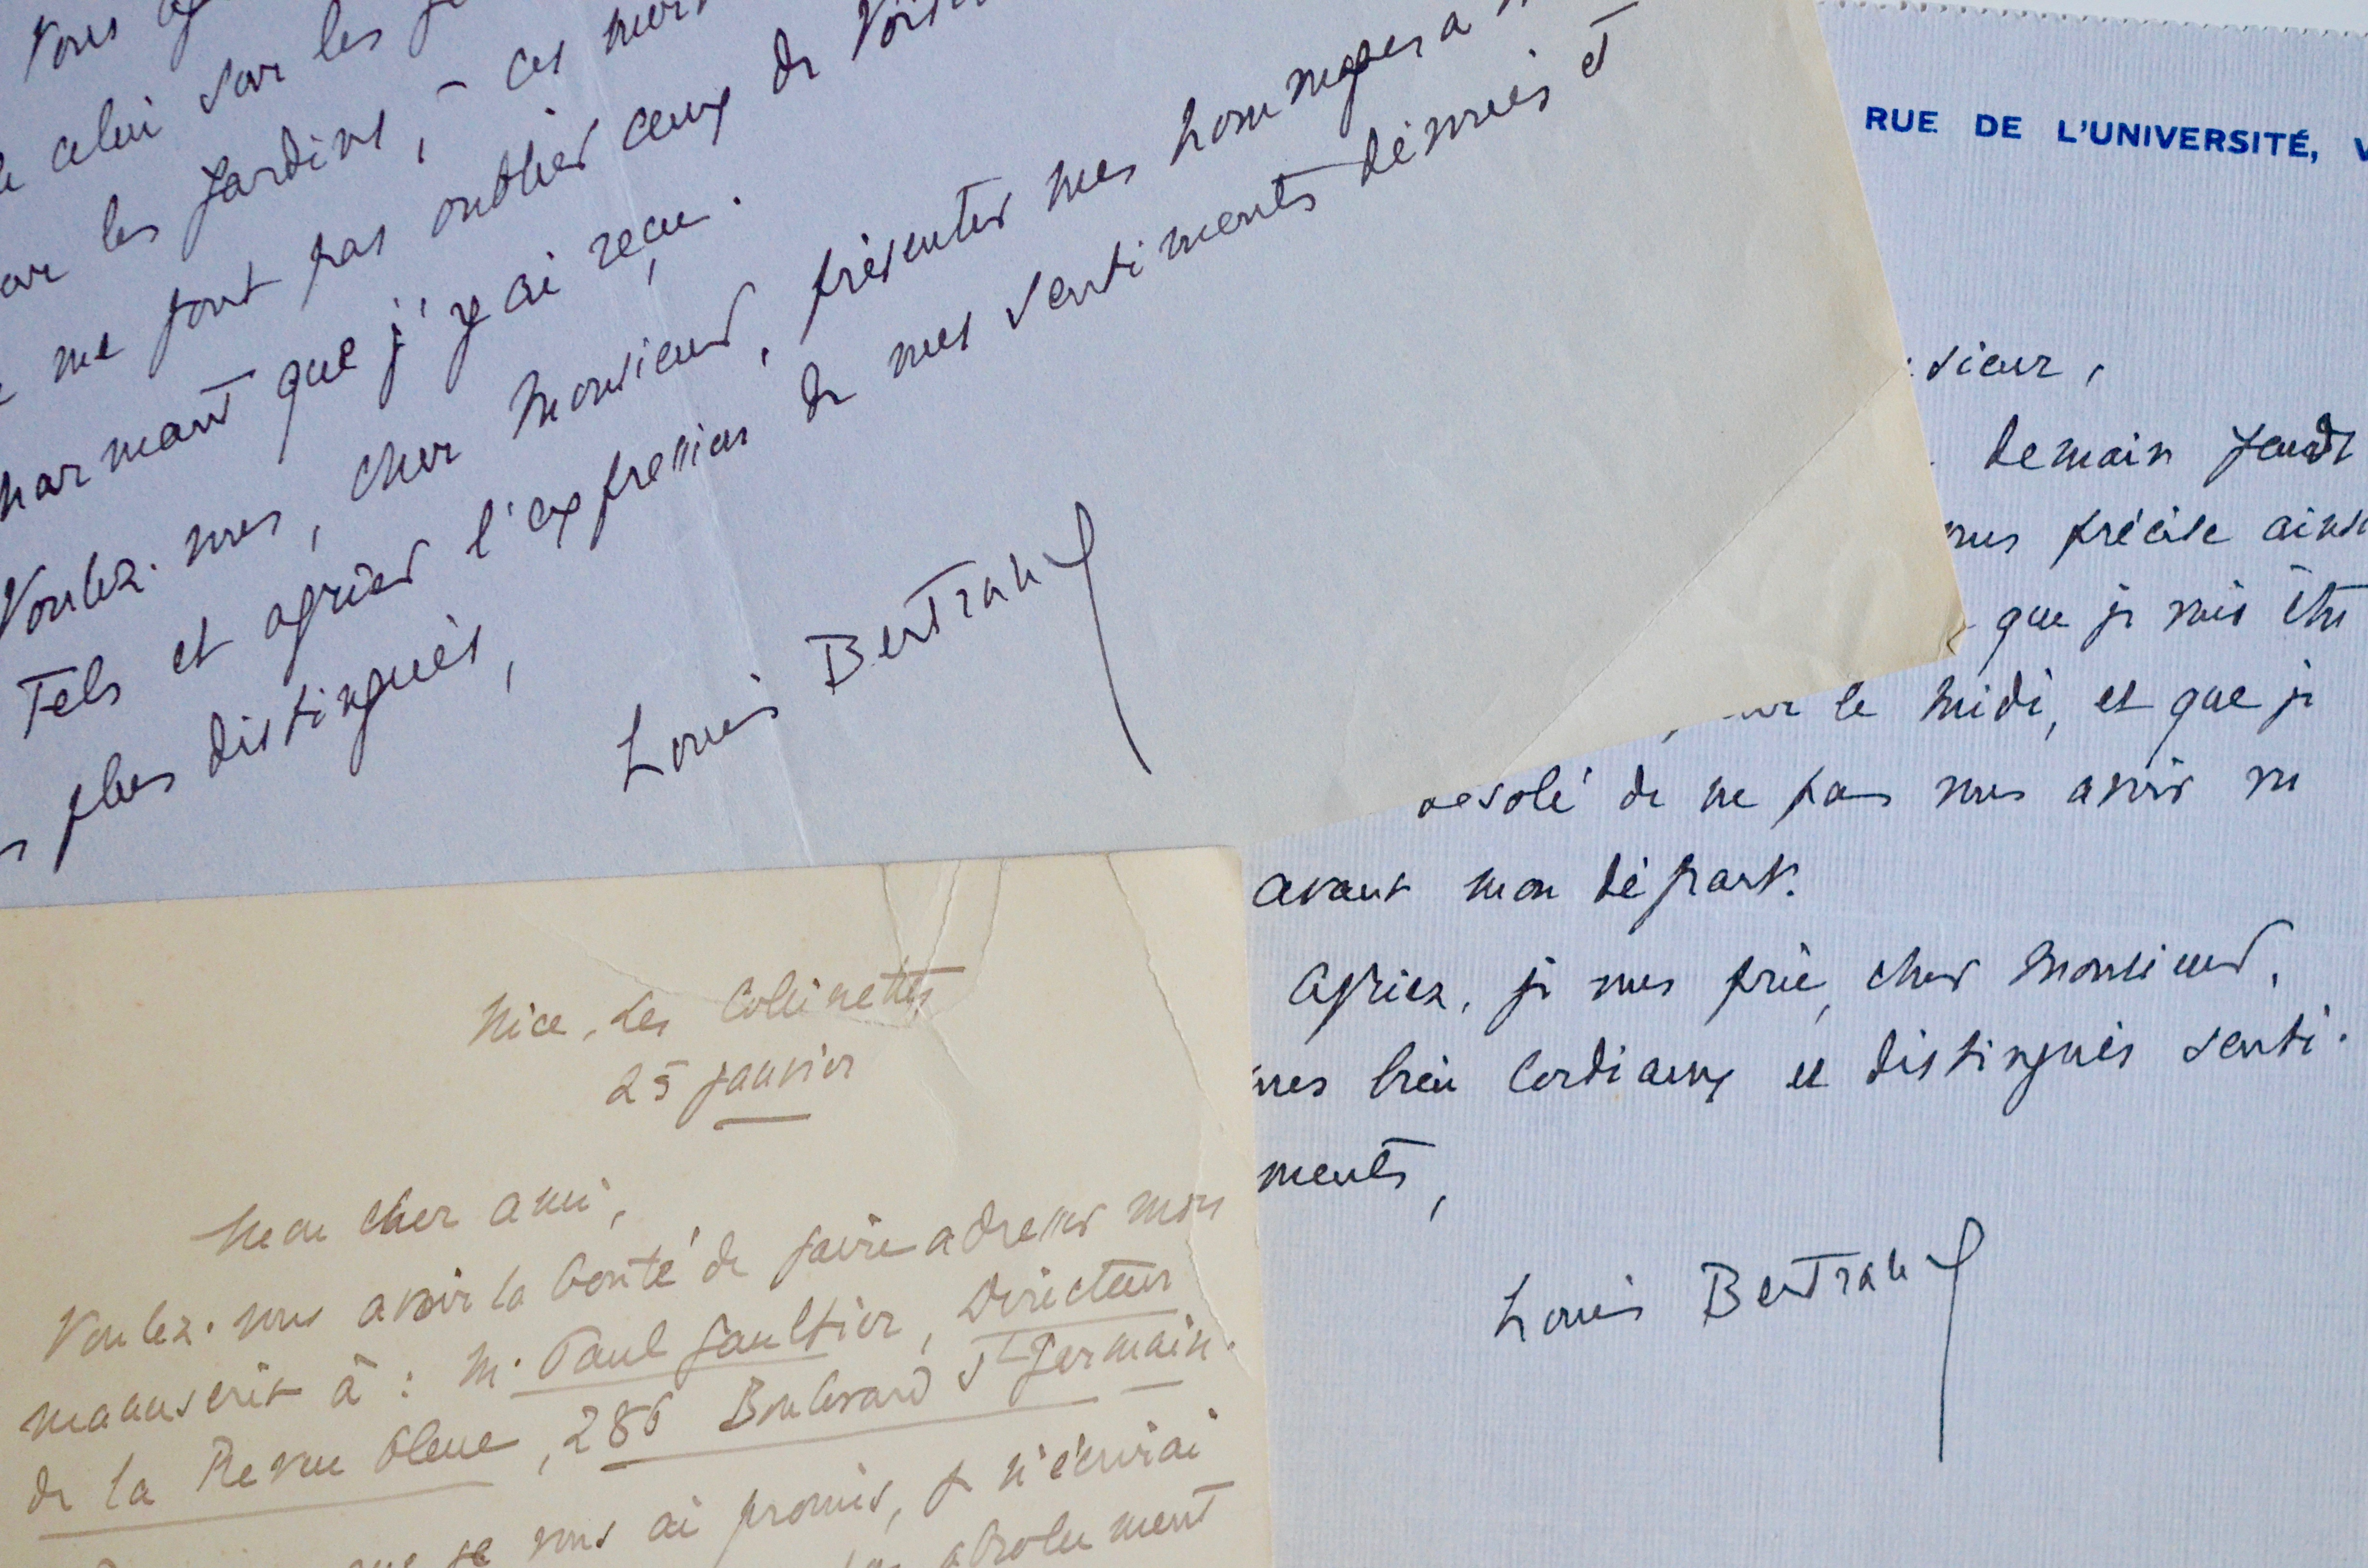 Vous
celui sur les
les jardins, à ces
me font pas oublier ceux de
charmant que j'y ai reçu.
Voulez-vous, cher Monsieur, présenter mes hommages à
Fels et agréer l'expression de mes sentiments dévoués et
plus distingués,
Louis Bertrand
RUE DE L'UNIVERSITÉ, V
sieur,
demain jeudi
vous précise ainsi
que je vais être
le midi, et que je
désolé de ne pas vous avoir vu
avant mon départ.
Agréez, je vous prie, cher Monsieur,
mes bien cordiaux et distingués senti-
ments,
Louis Bertrand
Nice, Les Collinettes
25 janvier
Mon cher ami,
Voulez-vous avoir la bonté de faire adresser mon
manuscrit à : M. Paul Gaultier, Directeur
de la Revue bleue, 286 Boulevard St Germain.
je vous ai promis, je n'écrirai
absolument